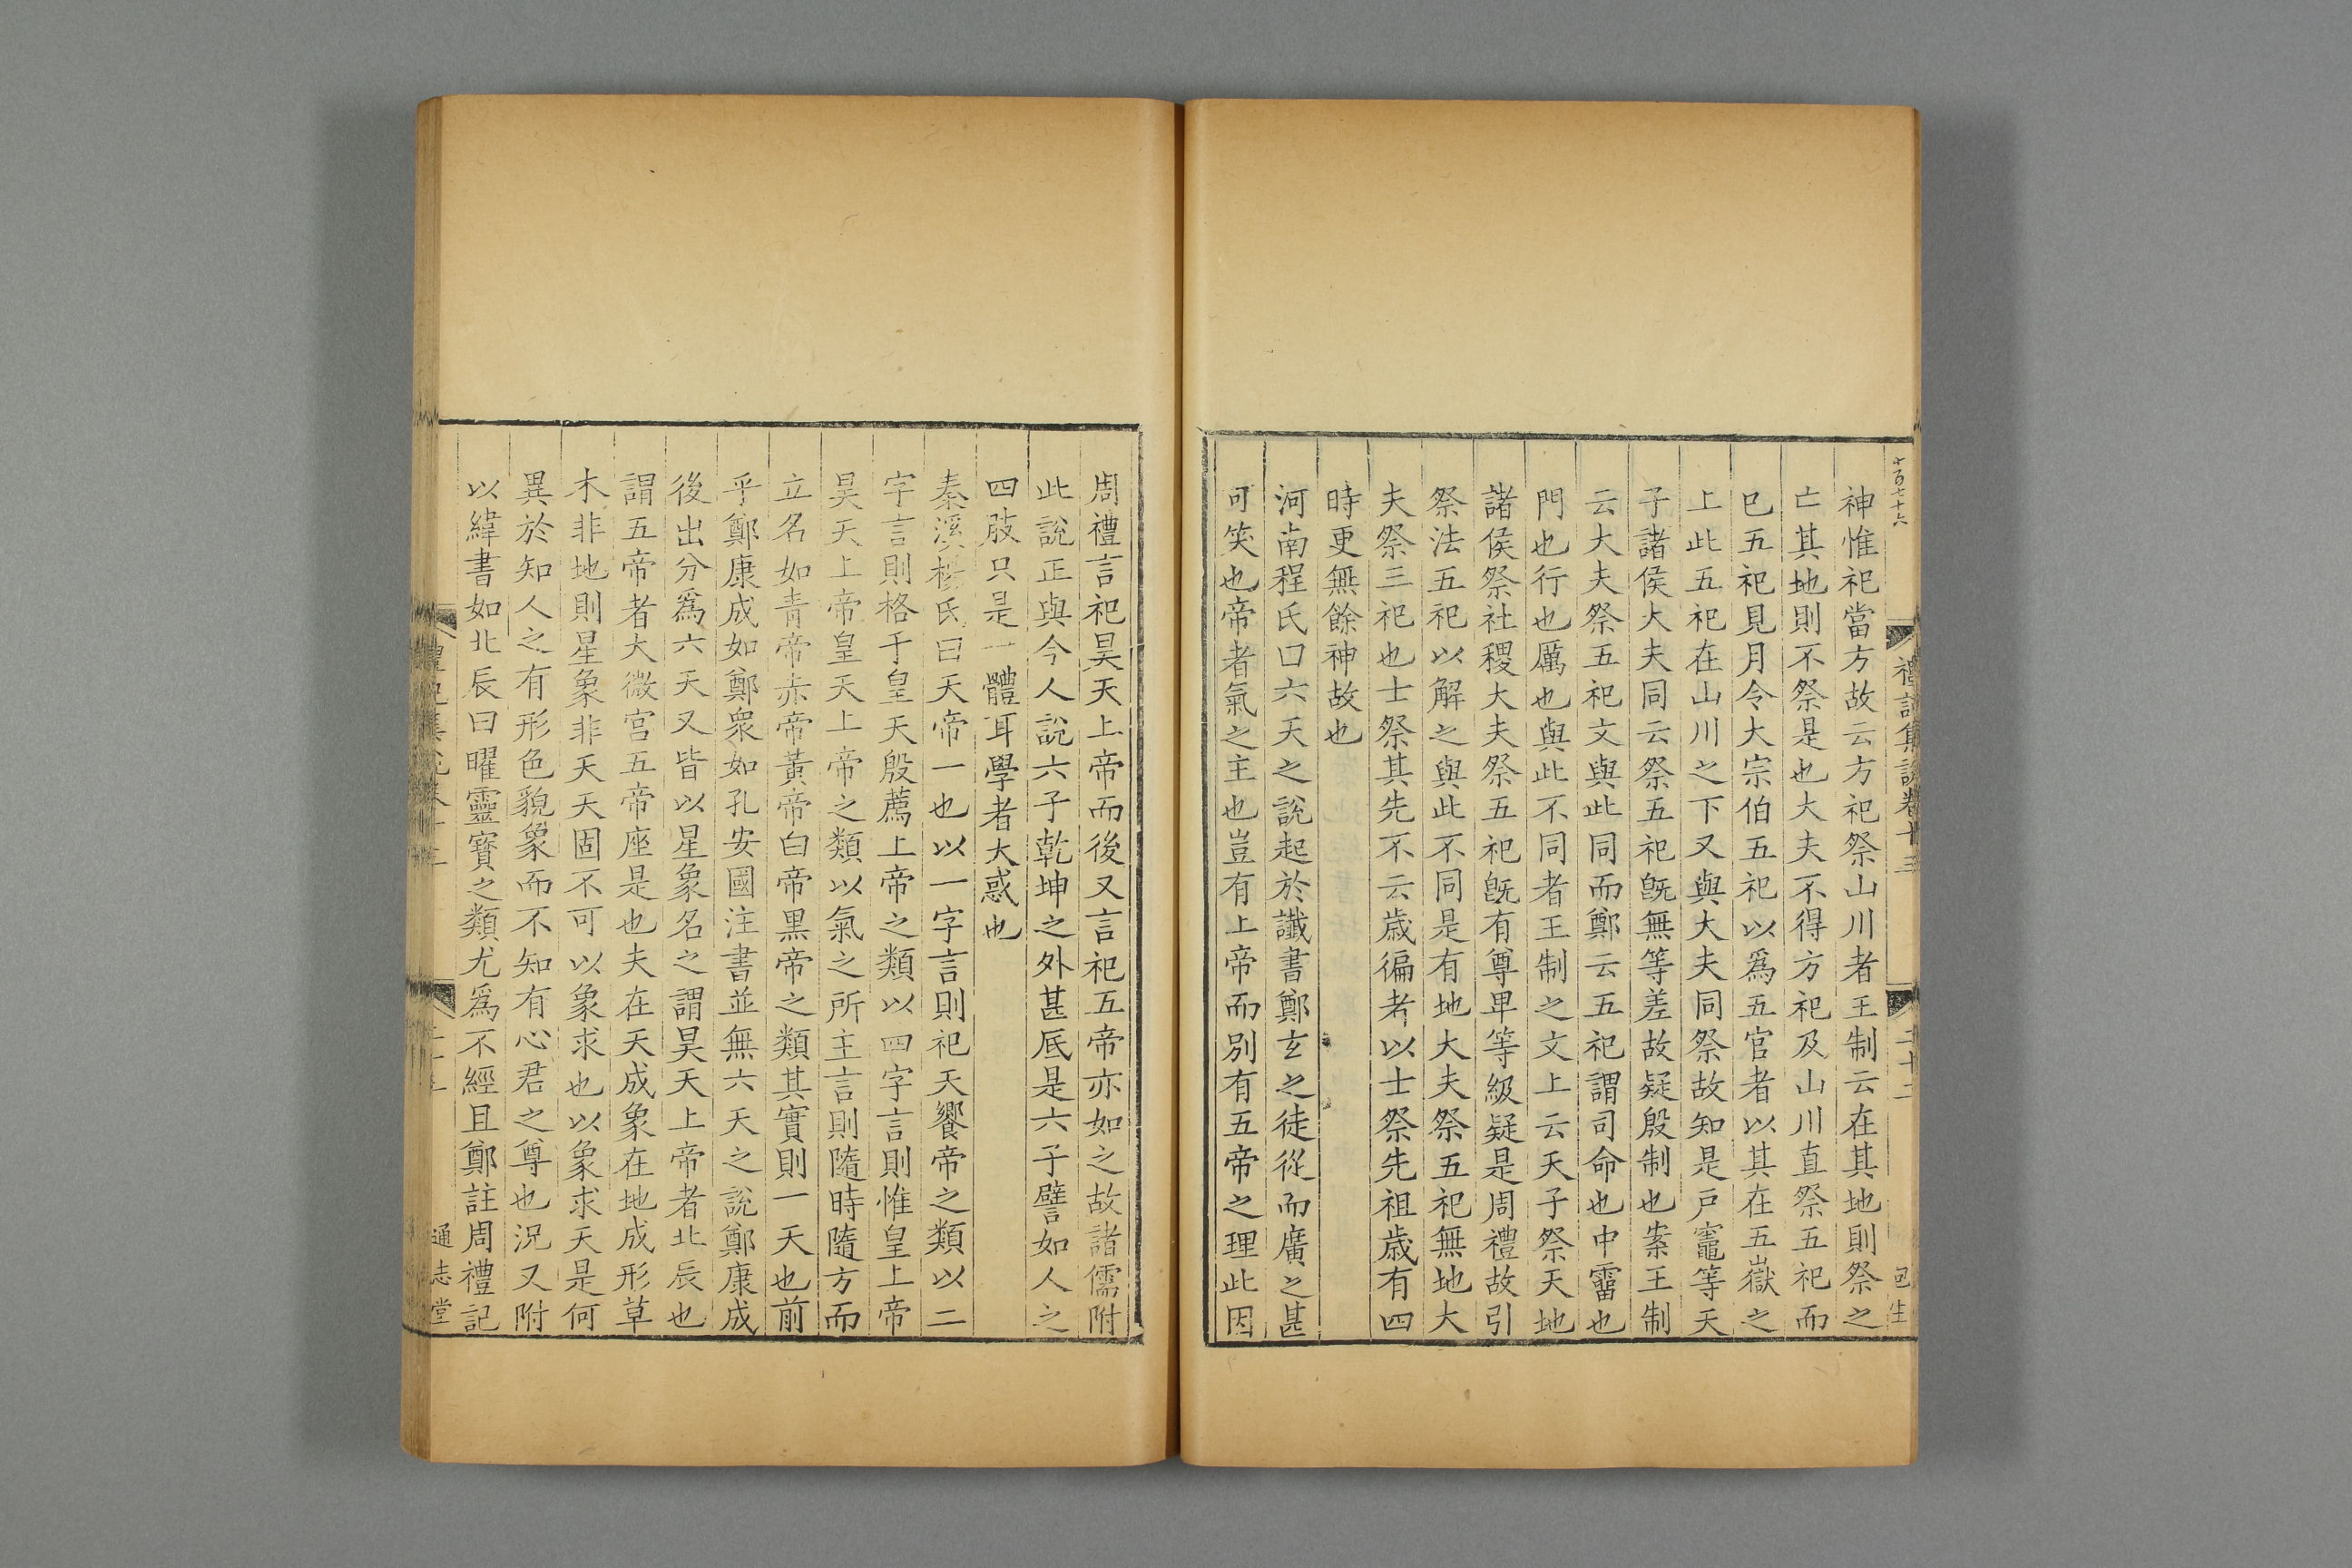 十百七十六
禮記集說卷十三
二十二
神惟祀當方故云方祀祭山川者王制云在其地則祭之
亡其地則不祭是也大夫不得方祀及山川直祭五祀而
巳五祀見月令大宗伯五祀以爲五官者以其在五嶽之
上此五祀在山川之下又與大夫同祭故知是戶竈等天
子諸侯大夫同云祭五祀旣無等差故疑殷制也案王制
云大夫祭五祀文與此同而鄭云五祀謂司命也中霤也
門也行也厲也與此不同者王制之文上云天子祭天地
諸侯祭社稷大夫祭五祀旣有尊卑等級疑是周禮故引
祭法五祀以解之與此不同是有地大夫祭五祀無地大
夫祭三祀也士祭其先不云歳徧者以士祭先祖歳有四
時更無餘神故也
河南程氏曰六天之說起於讖書鄭玄之徒從而廣之甚
可笑也帝者氣之主也豈有上帝而別有五帝之理此因
周禮言祀昊天上帝而後又言祀五帝亦如之故諸儒附
此說正與今人說六子乾坤之外甚底是六子譬如人之
四肢只是一體耳學者大惑也
秦溪楊氏曰天帝一也以一字言則祀天饗帝之類以二
字言則格于皇天殷薦上帝之類以四字言則惟皇上帝
昊天上帝皇天上帝之類以氣之所主言則隨時隨方而
立名如青帝赤帝黃帝白帝黑帝之類其實則一天也前
乎鄭康成如鄭衆如孔安國注書並無六天之說鄭康成
後出分爲六天又皆以星象名之謂昊天上帝者北辰也
謂五帝者大微宮五帝座是也夫在天成象在地成形草
木非地則星象非天天固不可以象求也以象求天是何
異於知人之有形色貌象而不知有心君之尊也況又附
以緯書如北辰曰曜靈寶之類尤爲不經且鄭註周禮記
通志堂